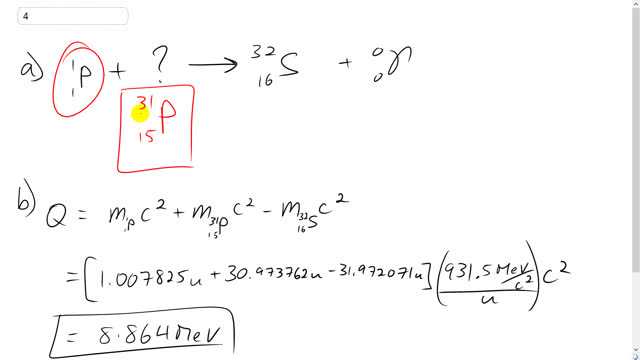 4
a) ¹₁p + ? ⟶ ³²₁₆S + ⁰₀γ
³¹₁₅P
b) Q = m₁ₚc² + m³¹₁₅P c² − m³²₁₆S c²
= [1.007825u + 30.973762u − 31.972071u] (931.5 MeV/c² / u) c²
= 8.864 MeV